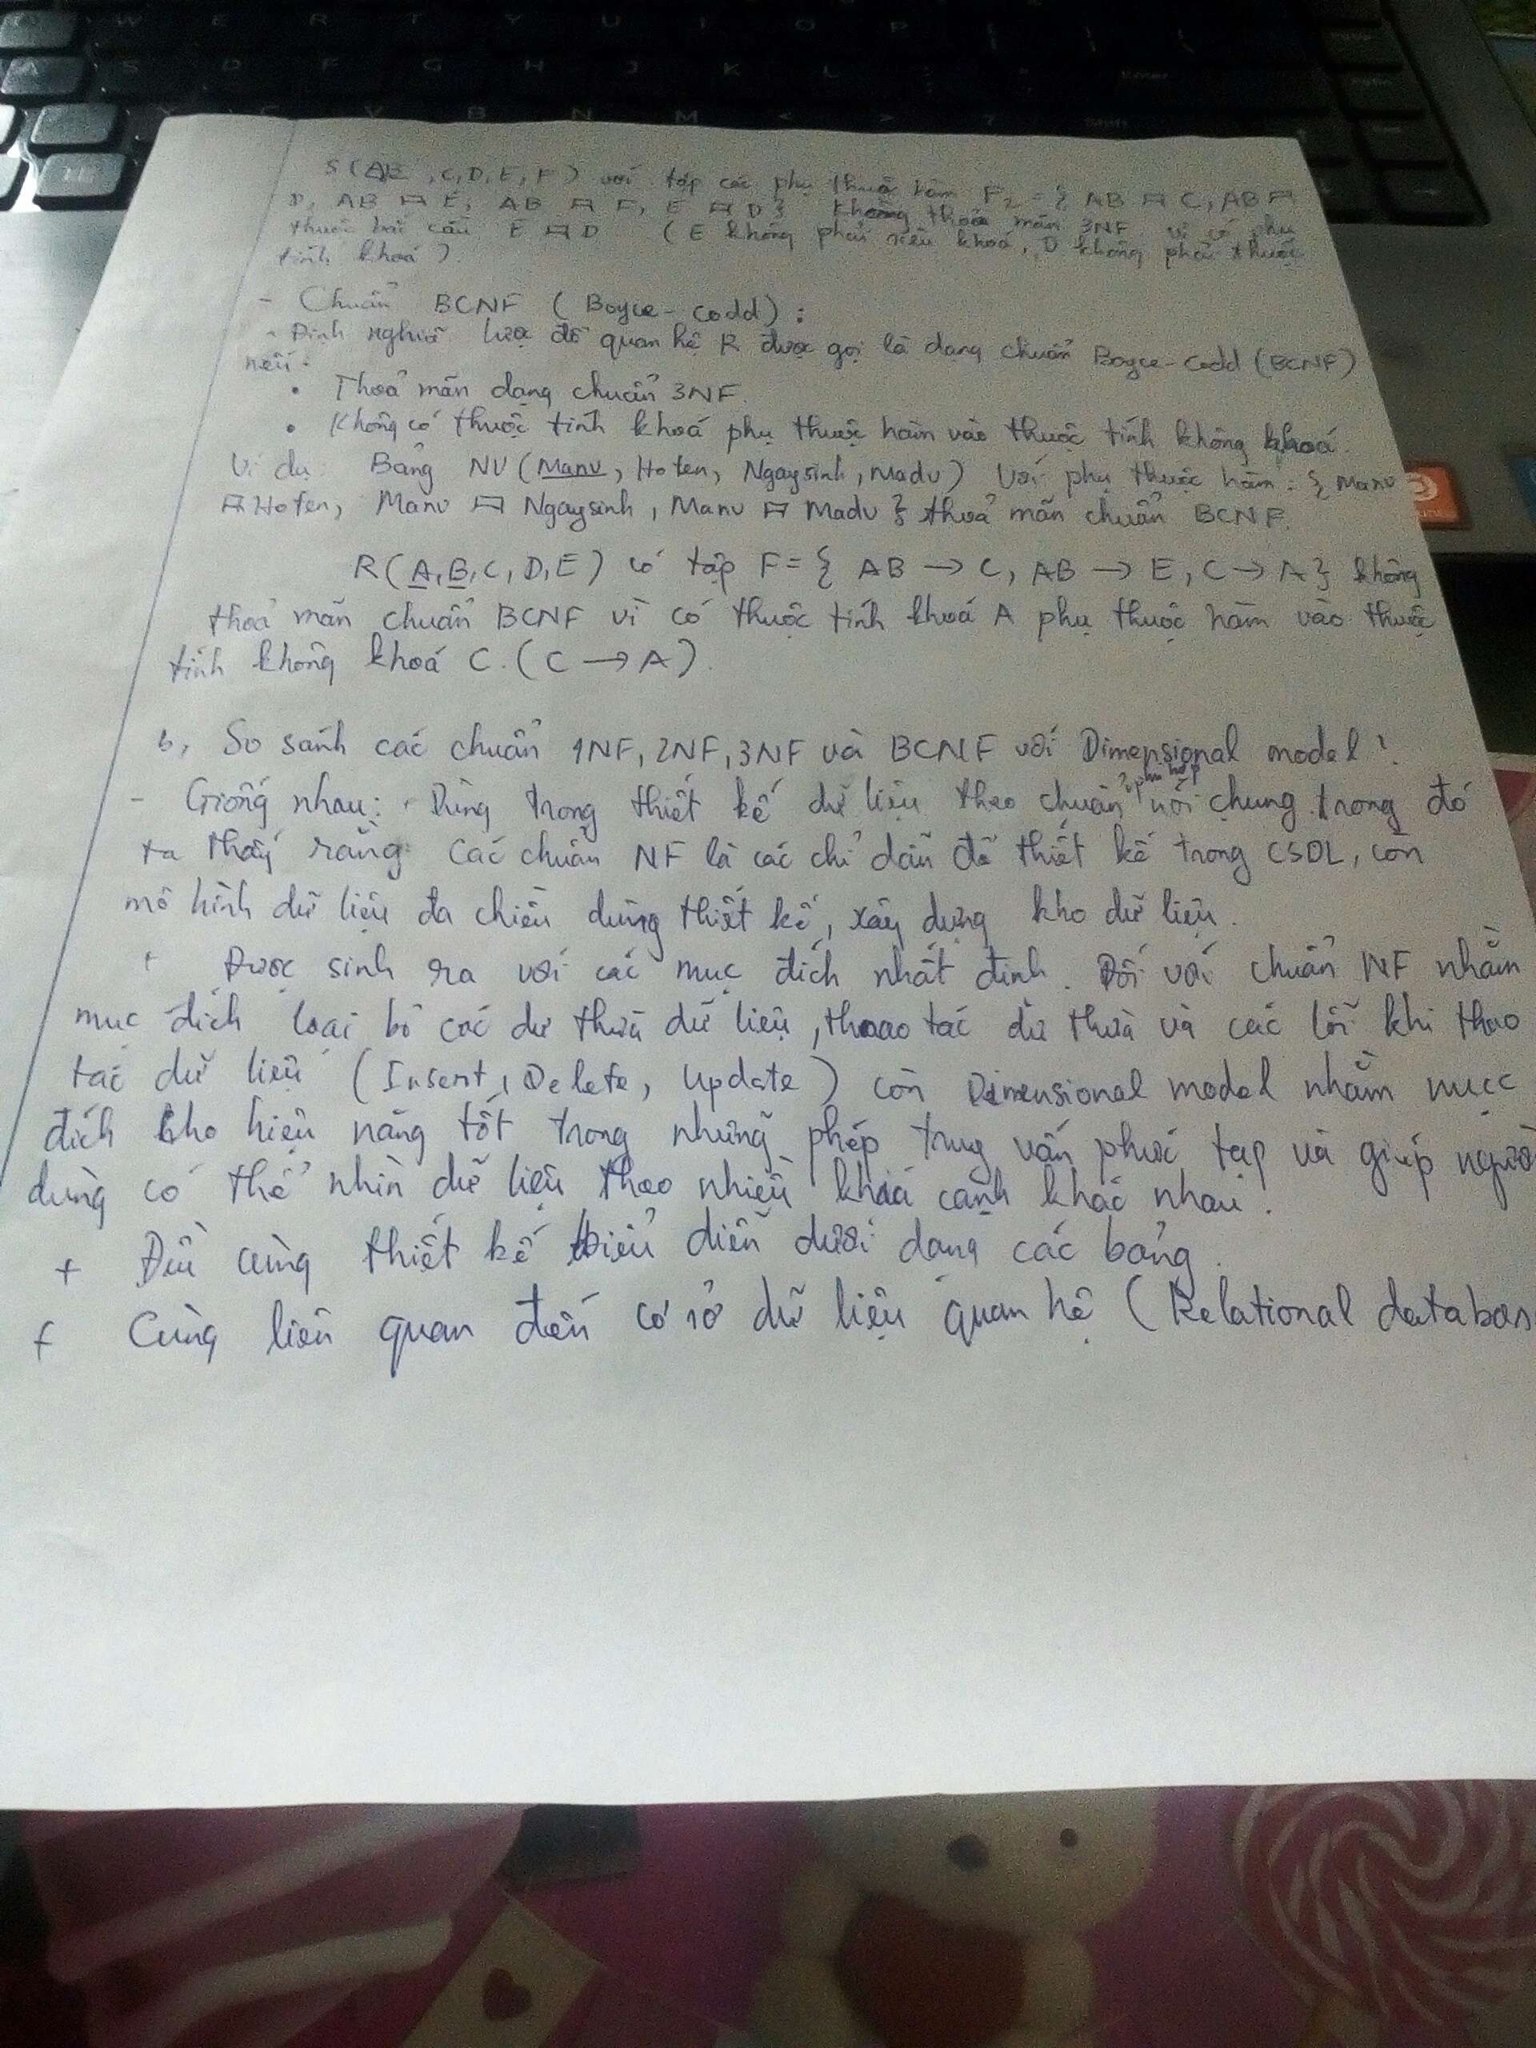 S(AB, C, D, E, F) với tập các phụ thuộc hàm F2 = { AB A C, AB A
D, AB A E, AB A F, E A D } không thoả mãn 3NF vì có phụ
thuộc bắc cầu E A D (E không phải siêu khoá, D không phải thuộc
tính khoá).
- Chuẩn BCNF (Boyce-codd):
- Định nghĩa lược đồ quan hệ R được gọi là dạng chuẩn Boyce-Codd (BCNF)
nếu:
• Thoả mãn dạng chuẩn 3NF.
• Không có thuộc tính khoá phụ thuộc hàm vào thuộc tính không khoá.
Ví dụ: Bảng NV (Manv, Hoten, Ngaysinh, Madv) Với phụ thuộc hàm: { Manv
A Hoten, Manv A Ngaysinh, Manv A Madv } thoả mãn chuẩn BCNF.
R(A, B, C, D, E) có tập F = { AB → C, AB → E, C → A } không
thoả mãn chuẩn BCNF vì có thuộc tính khoá A phụ thuộc hàm vào thuộc
tính không khoá C. (C → A).
b, So sánh các chuẩn 1NF, 2NF, 3NF và BCNF với Dimensional model!
- Giống nhau: + Dùng trong thiết kế dữ liệu theo chuẩn, phù hợp nói chung trong đó
ta thấy rằng các chuẩn NF là các chỉ dẫn để thiết kế trong CSDL, còn
mô hình dữ liệu đa chiều dùng thiết kế, xây dựng kho dữ liệu.
+ Được sinh ra với các mục đích nhất định. Đối với chuẩn NF nhằm
mục đích loại bỏ các dư thừa dữ liệu, thao tác dư thừa và các lỗi khi thao
tác dữ liệu (Insert, Delete, Update) còn Dimensional model nhằm mục
đích cho hiệu năng tốt trong những phép truy vấn phức tạp và giúp người
dùng có thể nhìn dữ liệu theo nhiều khía cạnh khác nhau!
+ Đều cùng thiết kế biểu diễn dưới dạng các bảng.
+ Cùng liên quan đến cơ sở dữ liệu quan hệ (Relational databas